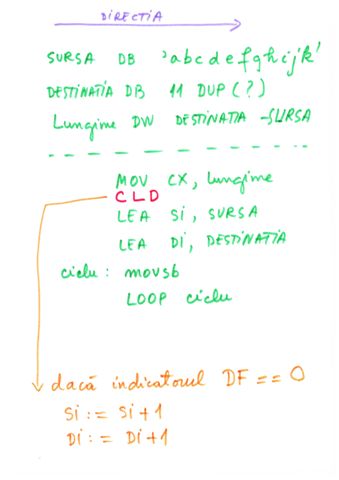 DIRECTIA
SURSA DB 'abcdefghijk'
DESTINATIA DB 11 DUP (?)
Lungime DW DESTINATIA -SURSA
MOV CX, lungime
CLD
LEA Si, SURSA
LEA Di, DESTINATIA
ciclu: movsb
LOOP ciclu
dacă indicatorul DF == 0
Si := Si+1
Di := Di+1